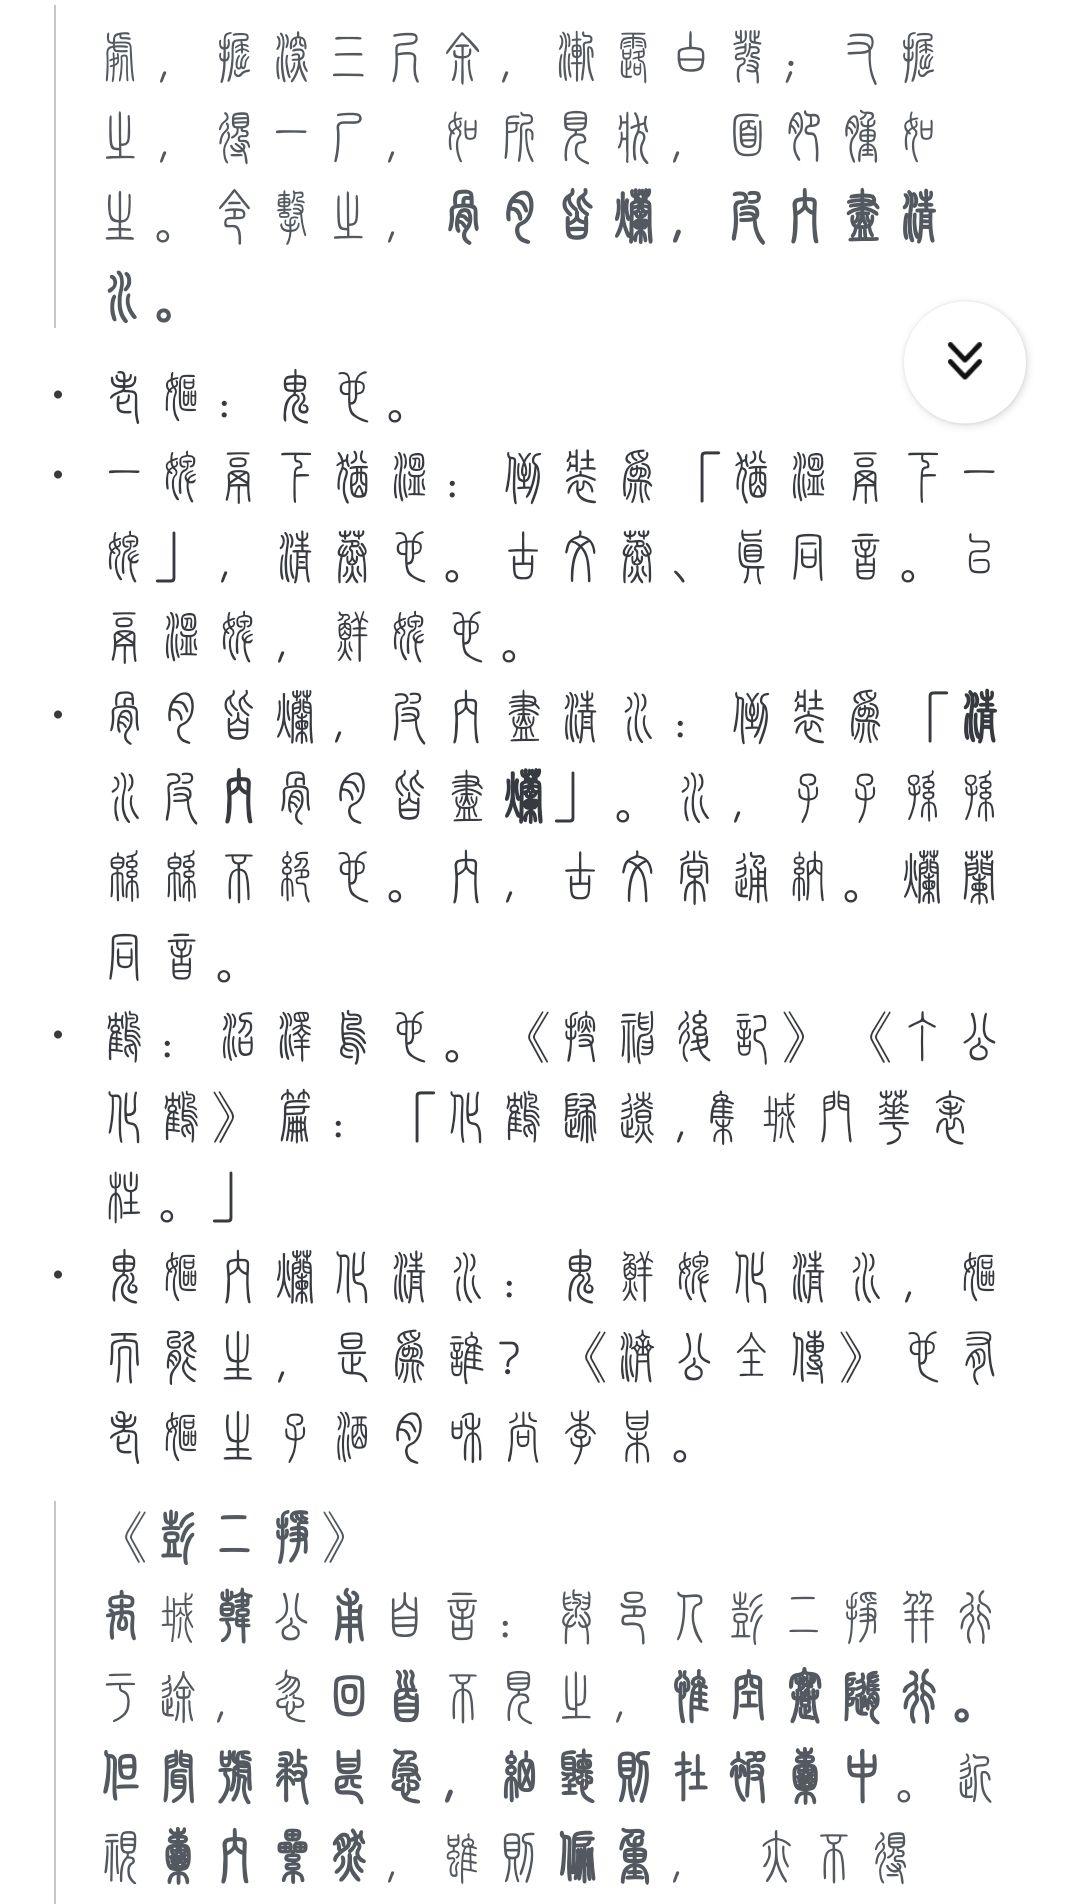 處，掘深三尺余，漸露白髮；又掘
之，得一尸，如所見狀，面肥腫如
生。令擊之，骨肉皆爛，皮內盡清
水。
• 老嫗：鬼也。
• 一婢鬲下猶溫：倒裝爲「猶溫鬲下一
婢」，清蒸也。古文蒸、真同音。已
鬲溫婢，鮮婢也。
• 骨肉皆爛，皮內盡清水：倒裝爲「清
水皮內骨肉皆盡爛」。水，子子孫孫
緜緜不絕也。內，古文常通納。爛蘭
同音。
• 鶴：沼澤鳥也。《搜神後記》《丁公
化鶴》篇：「化鶴歸遼,集城門華表
柱。」
• 鬼嫗內爛化清水：鬼鮮婢化清水，嫗
而能生，是爲誰？《濟公全傳》也有
老嫗生子酒肉和尚李某。
《彭二掙》
禹城韓公甫自言：與邑人彭二掙并行
于途，忽回首不見之，惟空蹇隨行。
但聞號救甚急，細聽則在被囊中。近
視囊內纍然，雖則偏重，亦不得